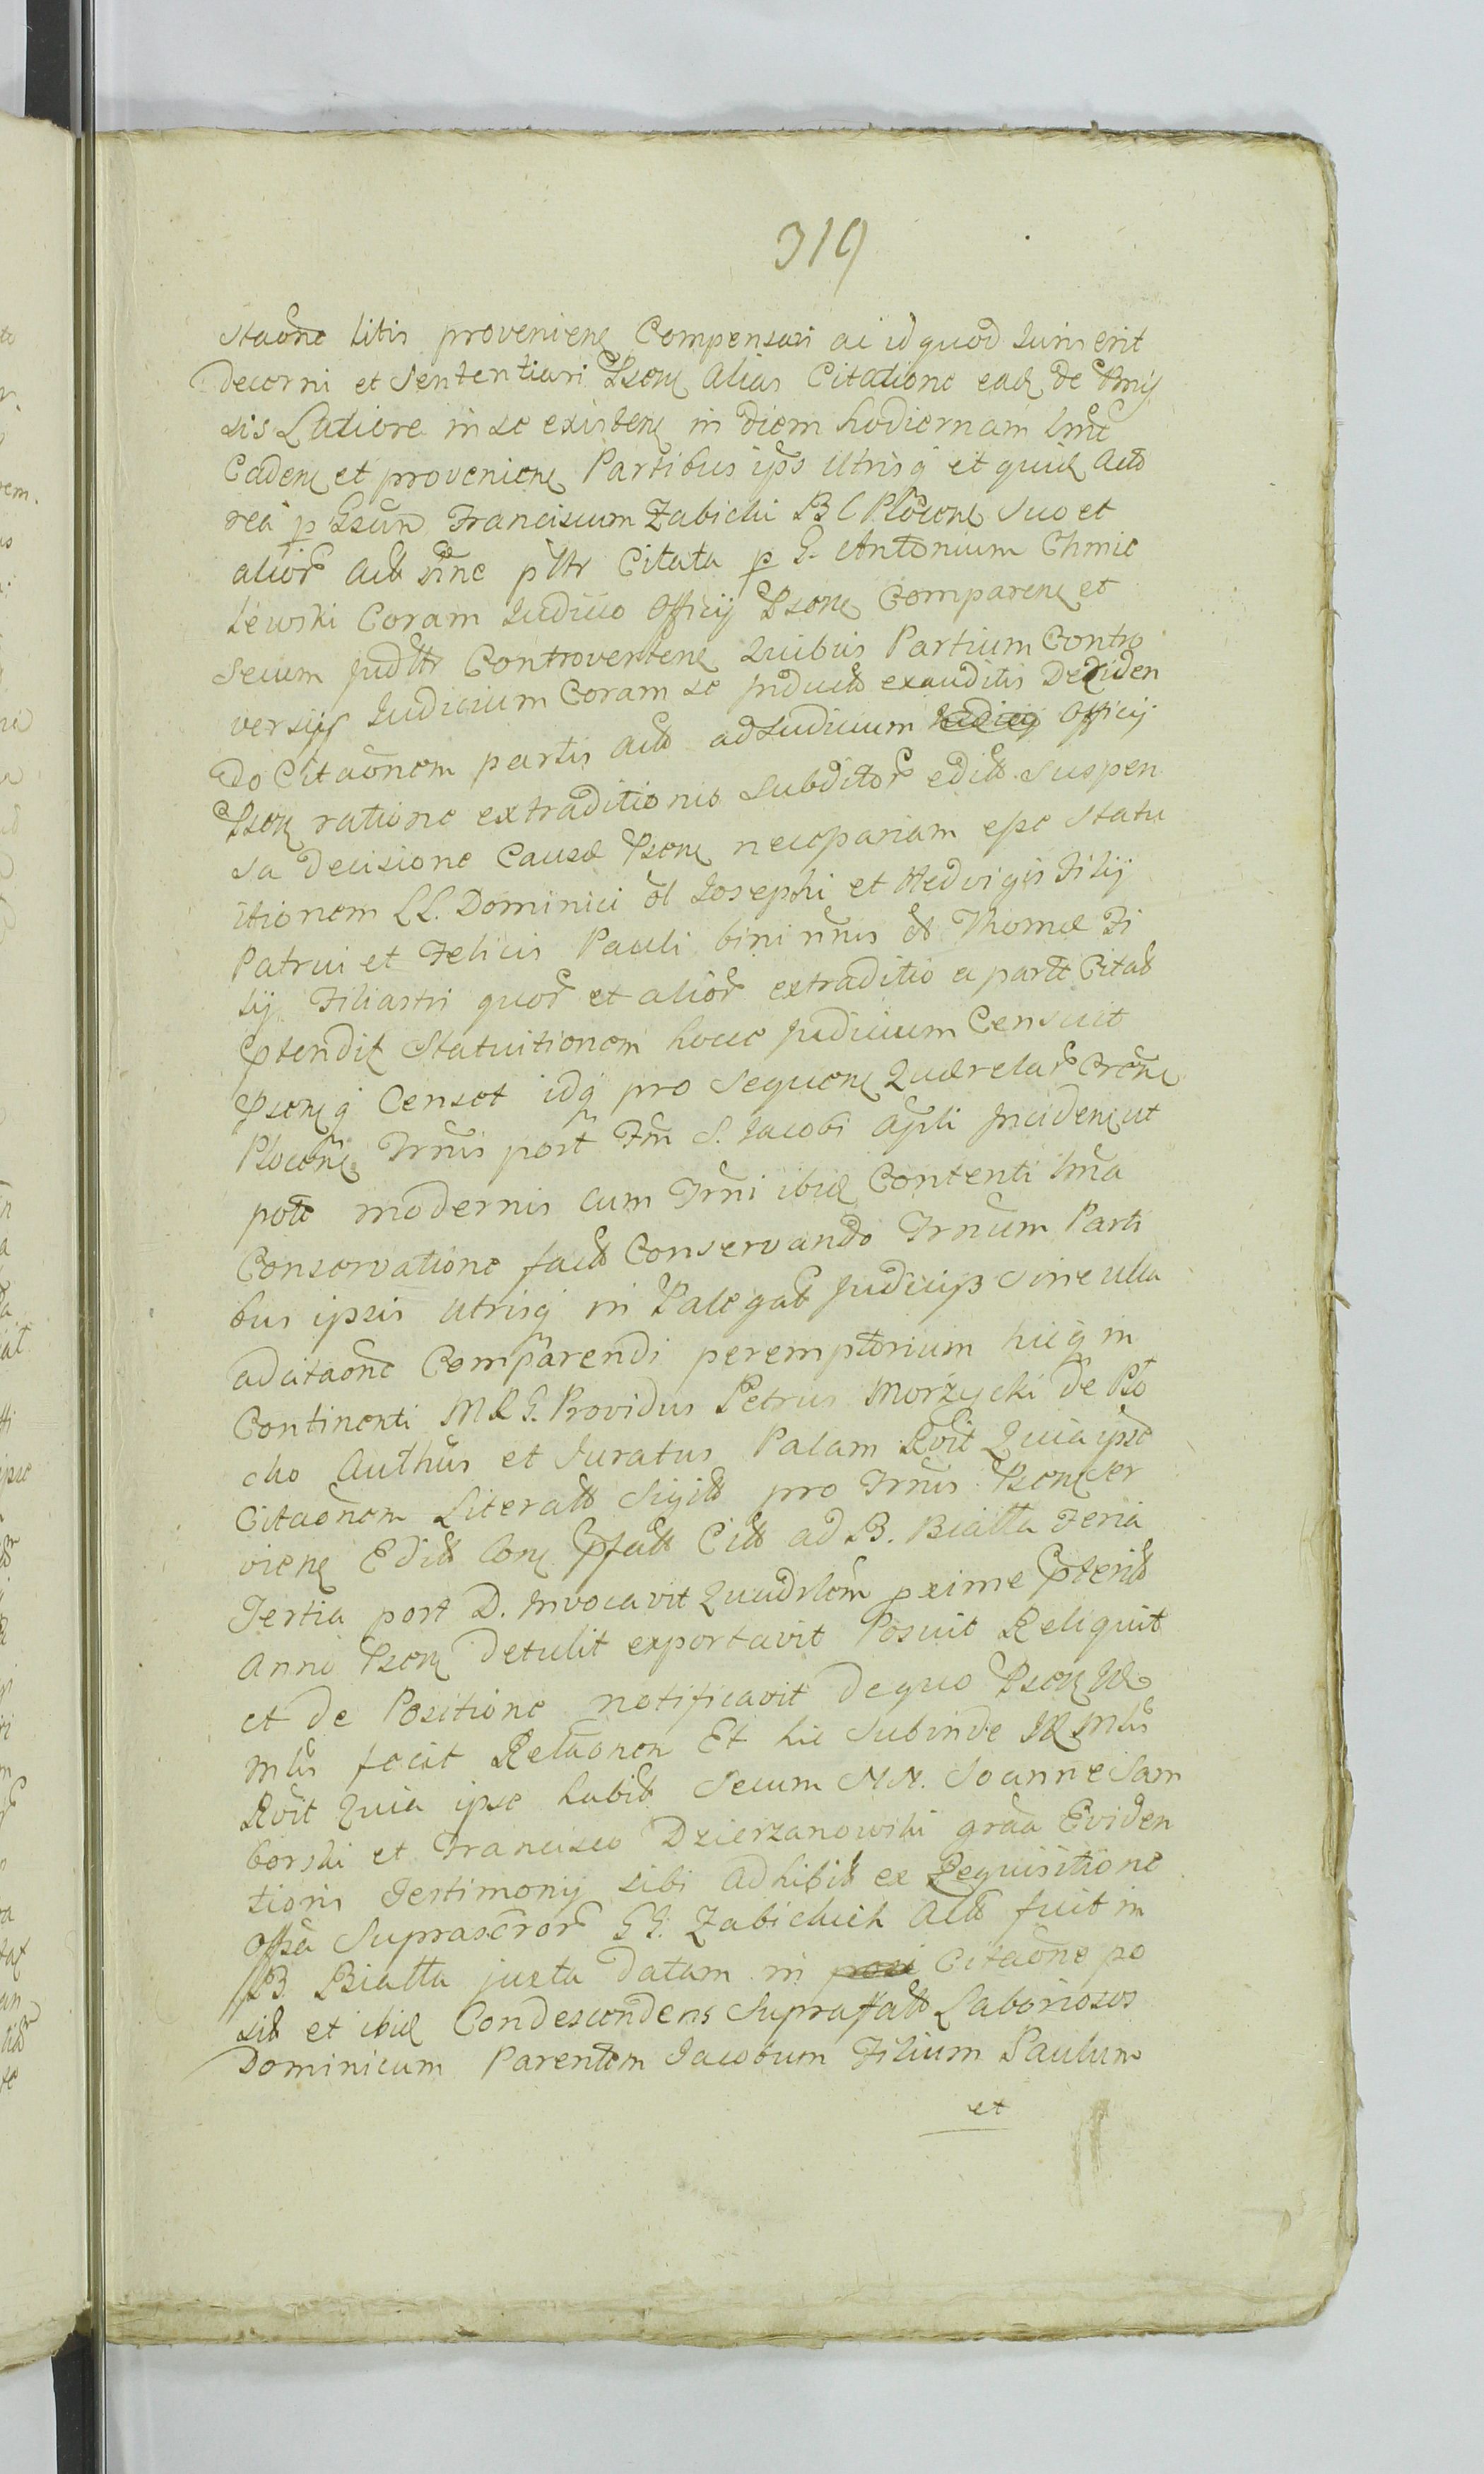 319
staõne litis provenieñ Compensari ac id quod Juris erit
decerni et Sententiari Pseñ alias Citatione ead de
sis Latiore in se existeñ in diem hodiernam
Cadeñ et provenieñ Partibus ips Utrisq et quid Act
rea p Gsum Franciscum Zabicki B C Ploceñ Suo et
alior Act nne p Citata p G. Antonium Chmie
lewski Coram Judicio Officij Pseñ Compareñ et
Secum Controverteñ Quibus Partium Contro
versijs Judicium Coram se induct exauditis Deciden
do Citaõnem partis act ad Judicium Officij
Pseñ ratione extraditionis Subditor edit Suspen
sa decisione Causæ Pseñ necessariam esse Statu
itionem LL. Dominici ol Josephi et Hedvigis Filij
Patrui et Felicis Pauli bini nñis et Thomæ Fi
lij Filiastri quor et alior extraditio a parte Citat
ptendit Statuitionem hocce Judicium Censuit
Pseñq Censet idq pro Sequeñ Quærelar
Ploceñ Trnis post Fm S. Jacobi Apli Incideñ ut
pote modernis cum Trni ibid Contenti
Conservatione fact Conservando Trnum Parti
bus ipsis Utrisq in Palegat Judicijs Sine ulla
adcitaõne Comparendi peremptorium hicq in
Continenti M R G. Providus Petrus Morzycki de Plo
cko Authus et Juratus Palam Rvit Quia ipse
Citaõnem Literat Sigil pro Trnis Pseñ Ser
vieñ Edit Coñ pfat Cit ad B. Białła Feria
Tertia post D. Invocavit Quadrlem pxime pterit
Anni Pseñ detulit exportavit Posuit Reliquit
et de Positione notificavit dequo Pseñ Id
Mlis fecit Relaõnem Et hic Subinde Mlis
Rvit Quia ipse habit Secum NN. Joanne Sam
borski et Francisco Dzierzanowski graa Eviden
tioris Testimonij sibi adhibit ex Requisitione
Offsa Suprascror GG. Zabickich Act fuit in
B. Białła juxta datam in Citaõne po
sit et ibid Condescendens Suprafat Laboriosos
Dominicum Parentem Jacobum Filium Paulum
et